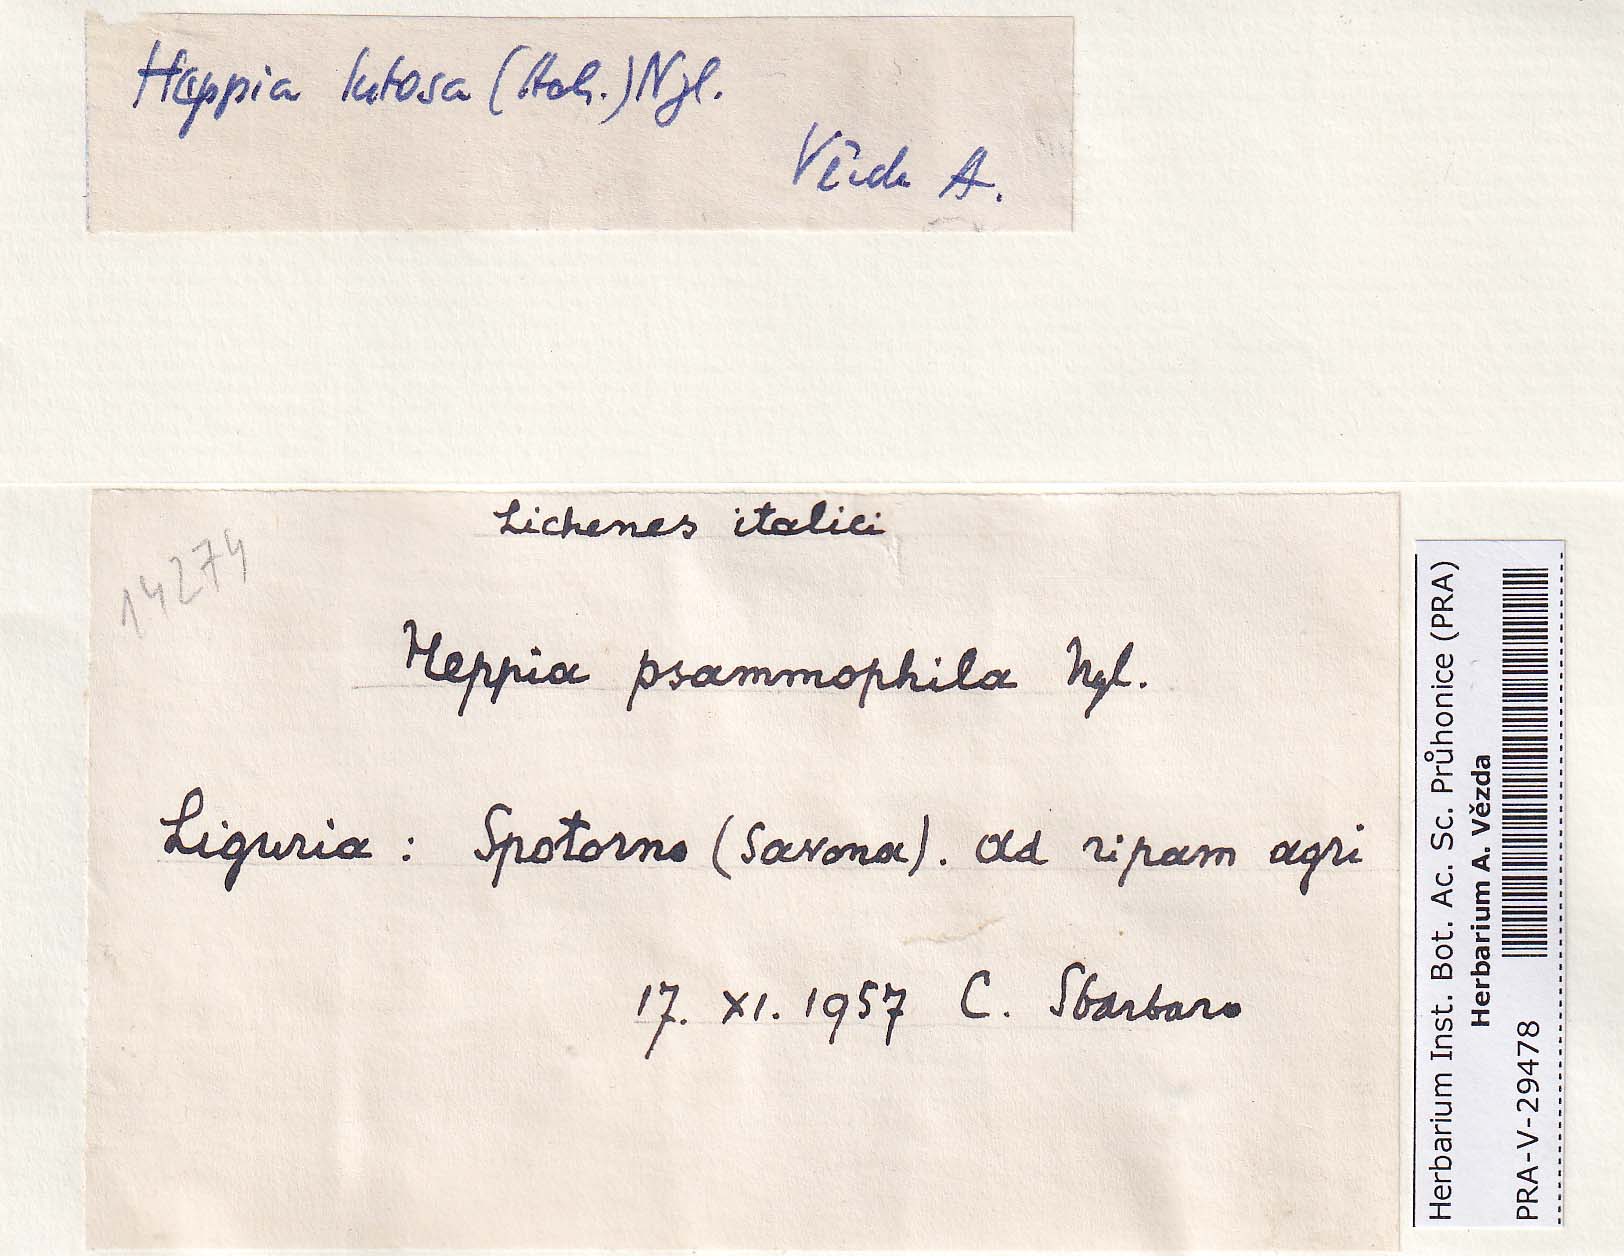 Heppia lutosa (Ach.) Nyl.
Vězda A.
14274
Lichenes italici
Heppia psammophila Nyl.
Liguria : Spotorno (Savona). Ad ripam agri
17. XI. 1957 C. Sbarbaro
Herbarium Inst. Bot. Ac. Sc. Průhonice (PRA)
Herbarium A. Vězda
PRA-V-29478